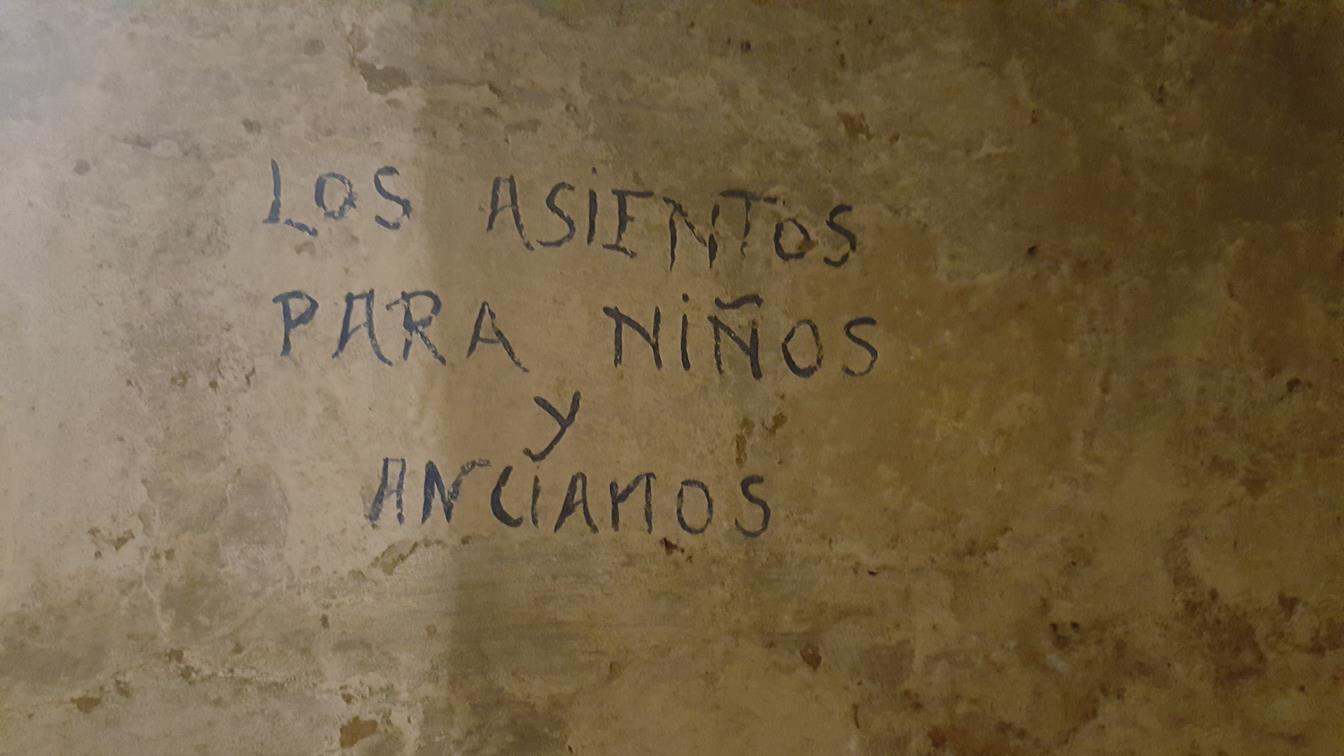 LOS ASiENTOS
PARA NiÑOS
Y
ANCIANOS